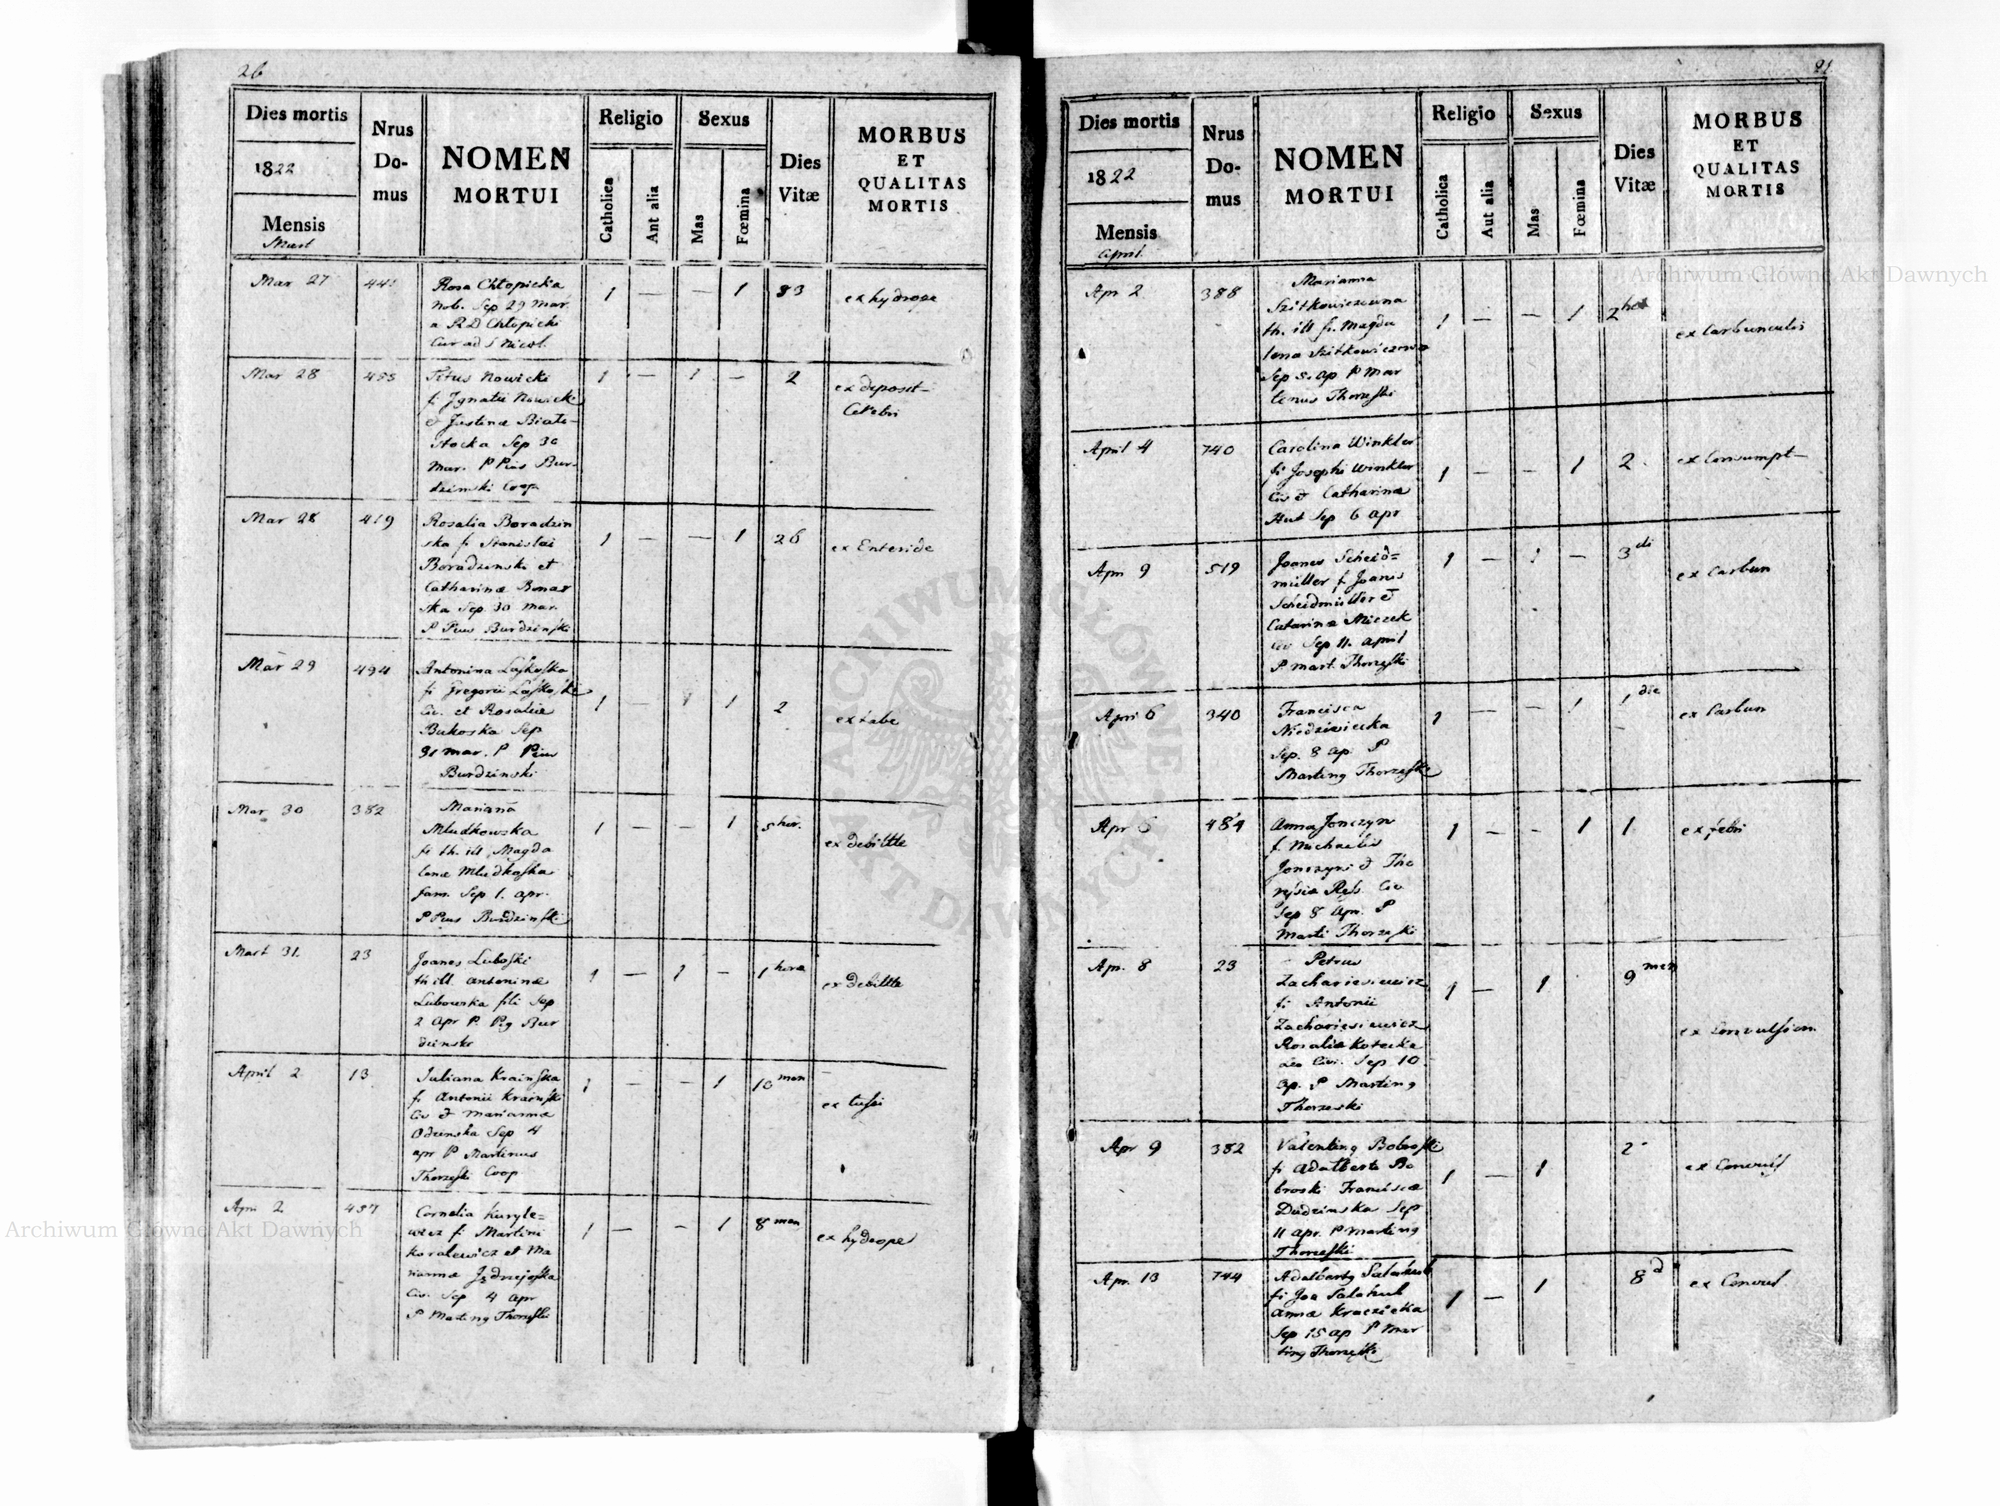 26
Dies mortis
1822
Mensis
Mart
Nrus
Do-
mus
NOMEN
MORTUI
Religio
Catholica
Aut alia
Sexus
Mas
Fœmina
Dies
Vitæ
MORBUS
ET
QUALITAS
MORTIS
Mar 27
Rosa Chłopicka
nob. Sep 29 mar.
a RD Chłopicki
Cur ad S Nicol.
1 — — 1 83
ex hydrope
Mar 28
Titus Nowicki
f. Ignatii Nowicki
& Justinæ Biało-
stocka Sep 30
mar. P Pius Bur-
dzinski Coop
1 — 1 — 2
ex deposit
Cerebri
Mar 28 419
Rosalia Boradzin
ska f. Stanislai
Boradzinski et
Catharinæ Bonar
ska Sep. 30 mar.
P Pius Burdzinski
1 — — 1 26
ex Enteride
Mar 29 494
Antonina Laskoska
fi Gregorii Laskoski
Civ. et Rosaliæ
Bukoska Sep
31 mar. P Pius
Burdzinski
1 — 1 2
ex tabe
Mar 30 382
Mariana
Mludkowska
fi th. ill Magda
lenæ Mludkoska
fam. Sep 1. apr.
P Pius Burdzinski
1 — — 1 5 hor.
ex debilitte
Mart 31. 23
Joanes Luboski
th ill. antoninæ
Lubowska fili Sep
2 Apr P. Pig Bur
dzinski
1 — 1 — 1 hora
ex debilitte
April 2 13
Juliana Krainska
f. Antonii Krainski
Civ & mariannæ
Odzinska Sep 4
apr P Martinus
Thorzeski Coop
1 — — 1 10 men
ex tussi
Apri 2 437
Cornelia Kuryle=
wicz f. Martini
Koralewicz et Ma
riannæ Jędrzejoska
Civ. Sep 4 apr
P Marting Thorzeski
1 — — 1 8 men
ex hydrope
21
Dies mortis
1822
Mensis
April
Nrus
Do-
mus
NOMEN
MORTUI
Religio
Catholica
Aut alia
Sexus
Mas
Fœmina
Dies
Vitæ
MORBUS
ET
QUALITAS
MORTIS
Apr 2 388
Marianna
Szitkowiczowna
th. ill fi. Magda
lena Szitkowiczowa
Sep 5. ap P Mar
tinus Thorzeski
1 — — 1 2 hor
ex Carbunculis
April 4 740
Carolina Winkler
fi Josephi Winkler
Civ & Catharinæ
Hut Sep 6 apr
1 — — 1 2
ex Consumpt
Apr 9 519
Joanes Scheid=
müller f. Joanis
Scheidmüller &
Catarinæ Miczek
Civ Sep 11. april
P mart. Thorzeski
1 — 1 — 3 di
ex Carbun
Apri 6 340
Francisca
Niedzwiecka
Sep. 8 ap. P
Marting Thorzeski
1 — — 1 1 die
ex Carbun
Apr 484
Anna Jonczyn
f. Michaelis
Jonczyni & The
resiæ Civ
Sep 8 Apr. P
Marti Thorzeski
1 — — 1 1
ex febri
Apr. 8 23
Petrus
Zachariesiewicz
fi Antonii
Zachariesiewicz
Rosaliæ Kotecka
Civi. Sep 10
ap. P Marting
Thorzeski
1 — 1 9 men
ex Convulsion
Apr 9 382
Valenting Boboski
fi Adalberti Bo
broski Franciscæ
Dudzinska Sep
11 apr. P Marting
Thorzeski
1 — 1 2
ex Convuls
Apr. 13 744
Adalbertg Salahub
fi Joa Salahub
Annæ Kraczicka
Sep 15 ap P Mar
ting Thorzeski
1 — 1 8 d
ex Convul
Archiwum Główne Akt Dawnych
Archiwum Główne Akt Dawnych
ARCHIWUM GŁÓWNE
AKT DAWNYCH